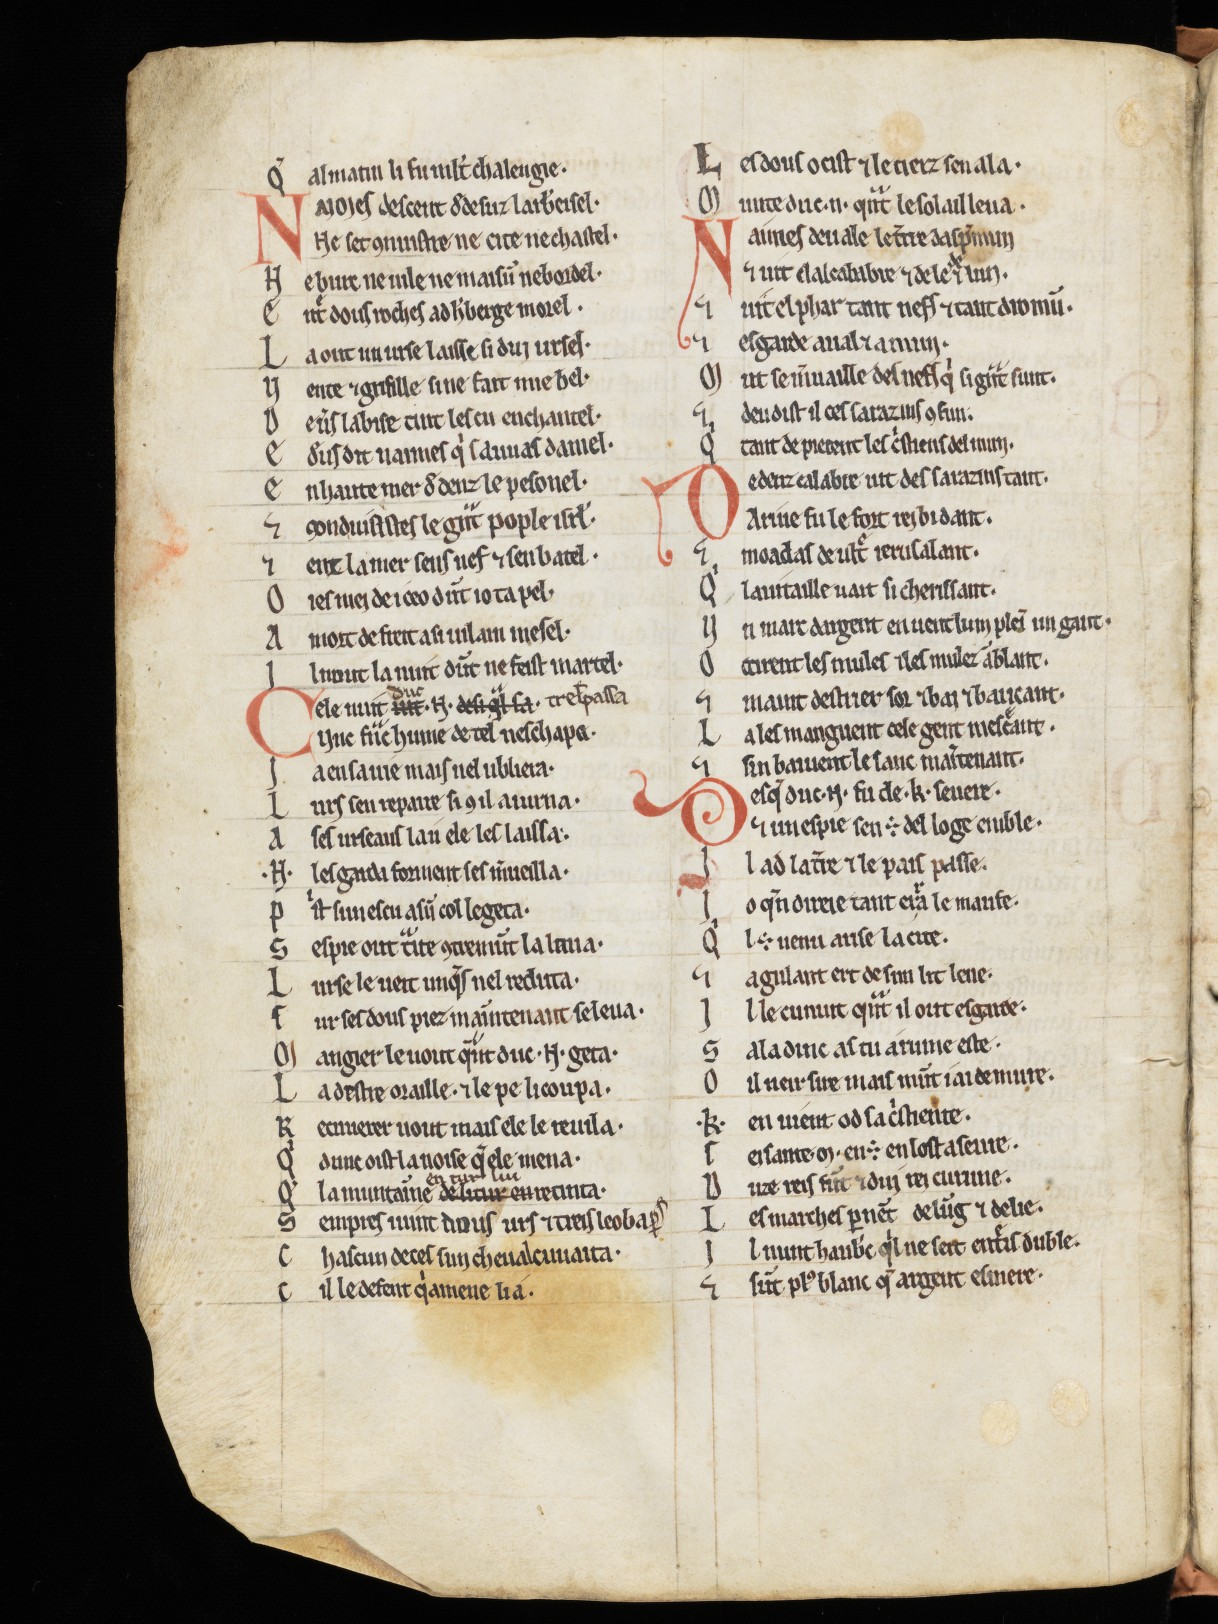 Q' al matin li fu mlt' chalengie.
NAMES descent desuz larb'eisel.
Ne set 9ninstre ne cite nechastel.
N e burc ne uile ne maisun nebordel.
E ntre dous roches ad h'berge morel.
L a out un urse laisse si dui ursel.
N ente grifille si ne fait mie bel.
D euers labise tint lescu enchantel.
E deus dit naimes qi saluas daniel.
E n haute mer dedenz le pesonel.
7 conduisistes le grant pople isrl'.
7 ent la mer sens nef 7 sen batel.
O ies mei de iceo dunt io tapel.
A mort de freit asi uilain mesel.
I l nout la nuit dunt ne feist martel.
Cele nuit duc .N. trespassa
Unc fiere hume de tel neschapa.
I a en sa uie mais nel ubliera.
L urs sen repaire si 9 il auiina.
A ses urseaus la u ele les laissa.
.N. les garda forment ses m'ueilla.
P ist sun escu a sun col le geta.
S espie out traite 9tremunt la leua.
L urse le ueit unques nel reduta.
S ur ses dous piez maintenant se leua.
M angier le uout quant duc .N. geta.
L a destre oraille. 7 le pe li coupa.
R ecunerer uout mais ele le reuila.
Q' dunc oist la noise q' ele mena.
Q' la muntaine en tur lui retinta.
S empres uint dous urs 7 treis leoparz
C hascun de cel sun cheual cuuaita.
C il le defent q'i amene li a.
L es dous ocist 7 le tierz sen ala.
M unte duc .n. quant le solail leua.
Naimes deuale le tertre daspremun
7 uit el alcababre 7 de le lun.
7 uit el phar tant nefs 7 tant dromun.
7 esgarde aual 7 amun.
M ut se m'uaille des nefs q' si grant sunt.
7 deu dist il ces sarazins 9fun.
Q' tant de pierent les c'stiens del mun.
Dedenz calabre uit des sarazins tant.
Arine fu le fort rei bidant.
7 moadas de ult' ierusalant.
Q' la uitaille uait si cherissant.
U n marc dargent en uent lum plein un gant.
O ccirent les mules 7 les mulez amblant.
7 maint destrier sor 7 bai 7 baucant.
L ales manguent cele gent mescreant.
7 sin baiuent le sanc maintenant.
Desq' duc .N. fu de .K. seuere.
7 un espie sen ÷ del loge enible.
I l ad la terre 7 le pais passe.
I o q'n direie tant eira le maufe.
Q' l ÷ uenu a rise la cite.
7 agulant ert de sun lit leue.
I l le cunuit quant il out esgarde.
S aladinc as tu a rume este.
O il ueir sire mais mut i ai demure.
.K. en uient od sa c'stiente.
S eisante .m. en ÷ en lost aseure.
D uze reis sunt 7 dui rei curune.
L es marches prenent de lung 7 de lie.
I l nunt haub'c q'l ne seit ent's duble.
7 sunt pl' blanc q' argent esmere.